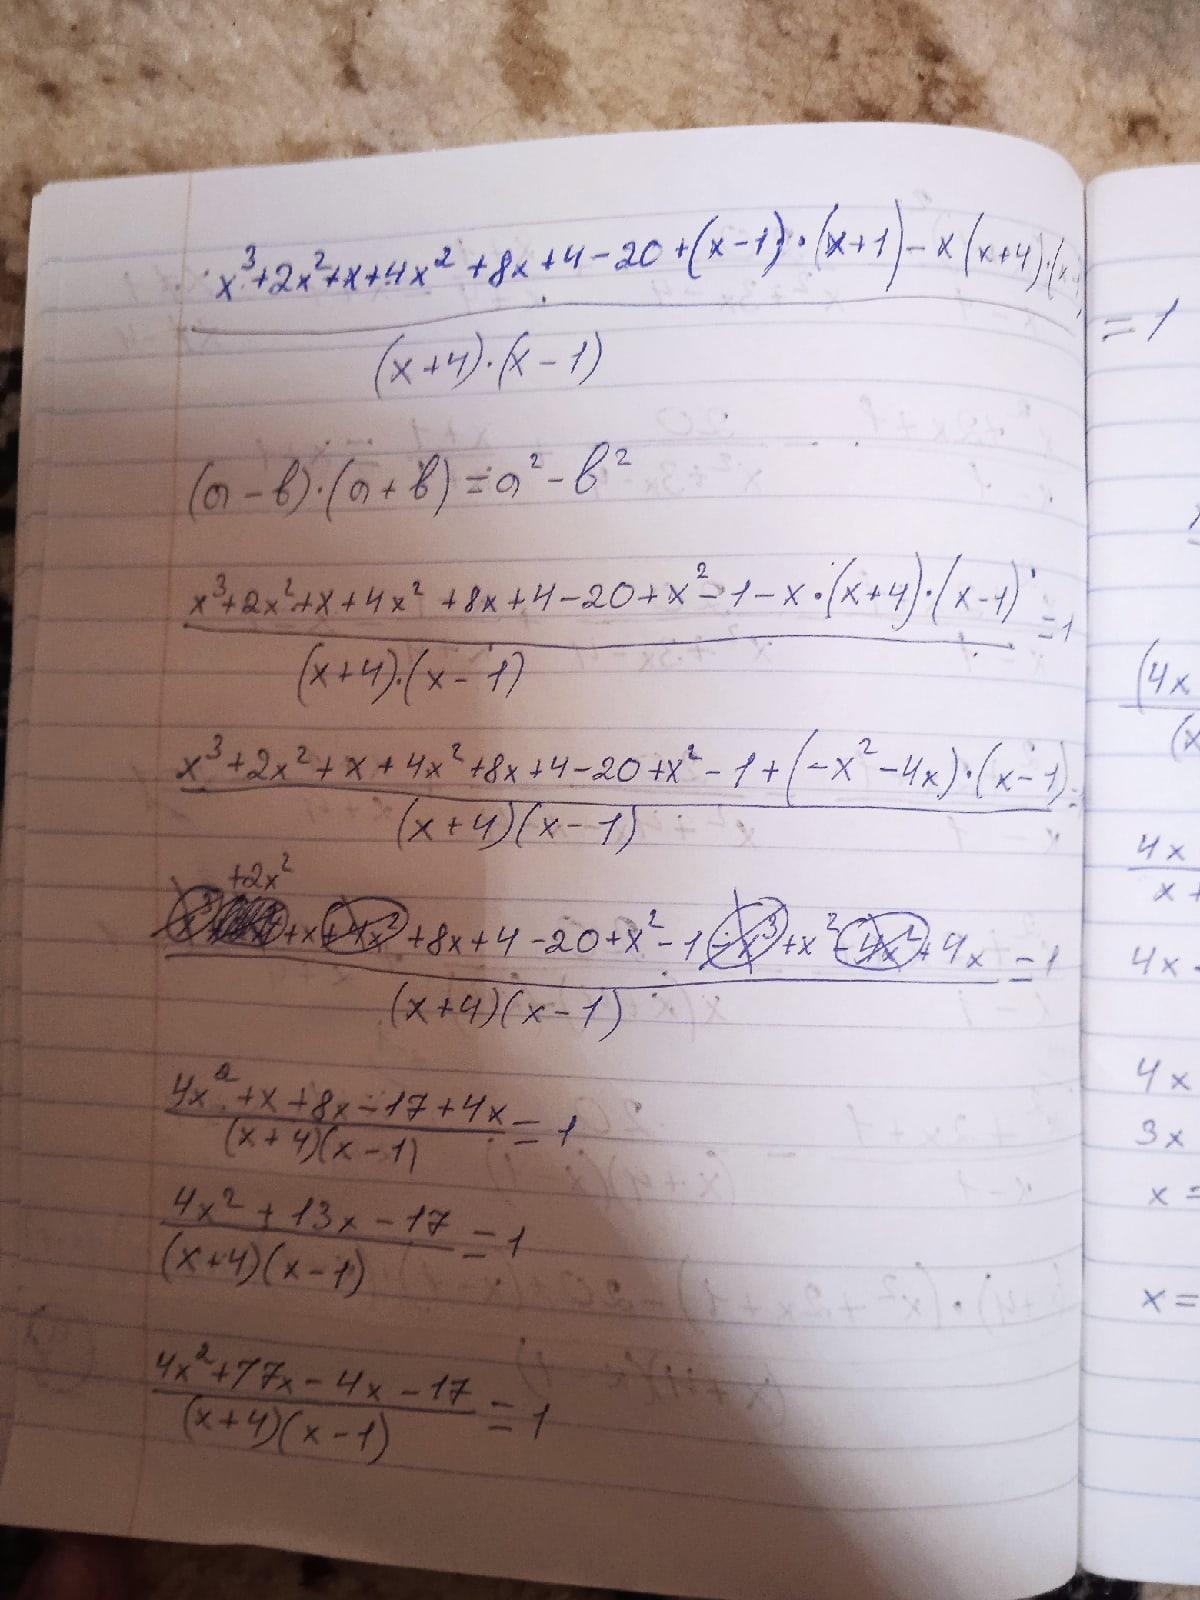 x³+2x²+x+4x²+8x+4-20+(x-1)·(x+1)-x(x+4)·(x
= 1
(x+4)·(x-1)
(a-b)·(a+b)=a²-b²
x³+2x²+x+4x²+8x+4-20+x²-1-x·(x+4)·(x-1) =1
(x+4)·(x-1)
x³+2x²+x+4x²+8x+4-20+x²-1+(-x²-4x)·(x-1)=
(x+4)(x-1)
+2x²
x³ +x+4x²+8x+4-20+x²-1-x³+x²-4x²+4x =1
(x+4)(x-1)
4x²+x+8x-17+4x =1
(x+4)(x-1)
4x²+13x-17 =1
(x+4)(x-1)
4x²+17x-4x-17 =1
(x+4)(x-1)
(4x
(x
4x
x+
4x-
4x
3x
x=
x=